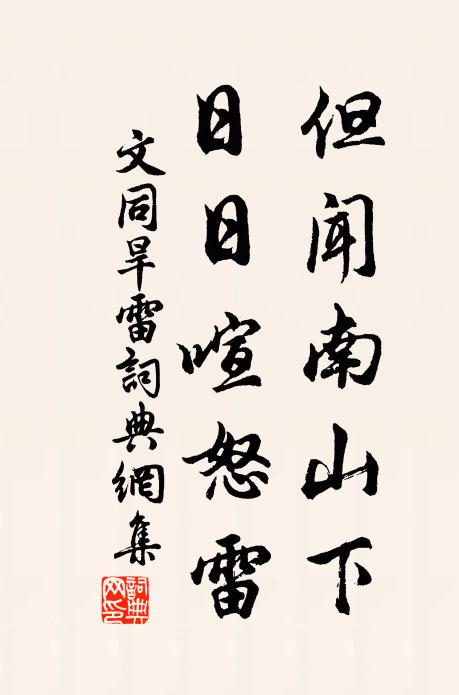 但闻南山下
日日喧怒雷
文同旱雷詞典網集
詞典网印